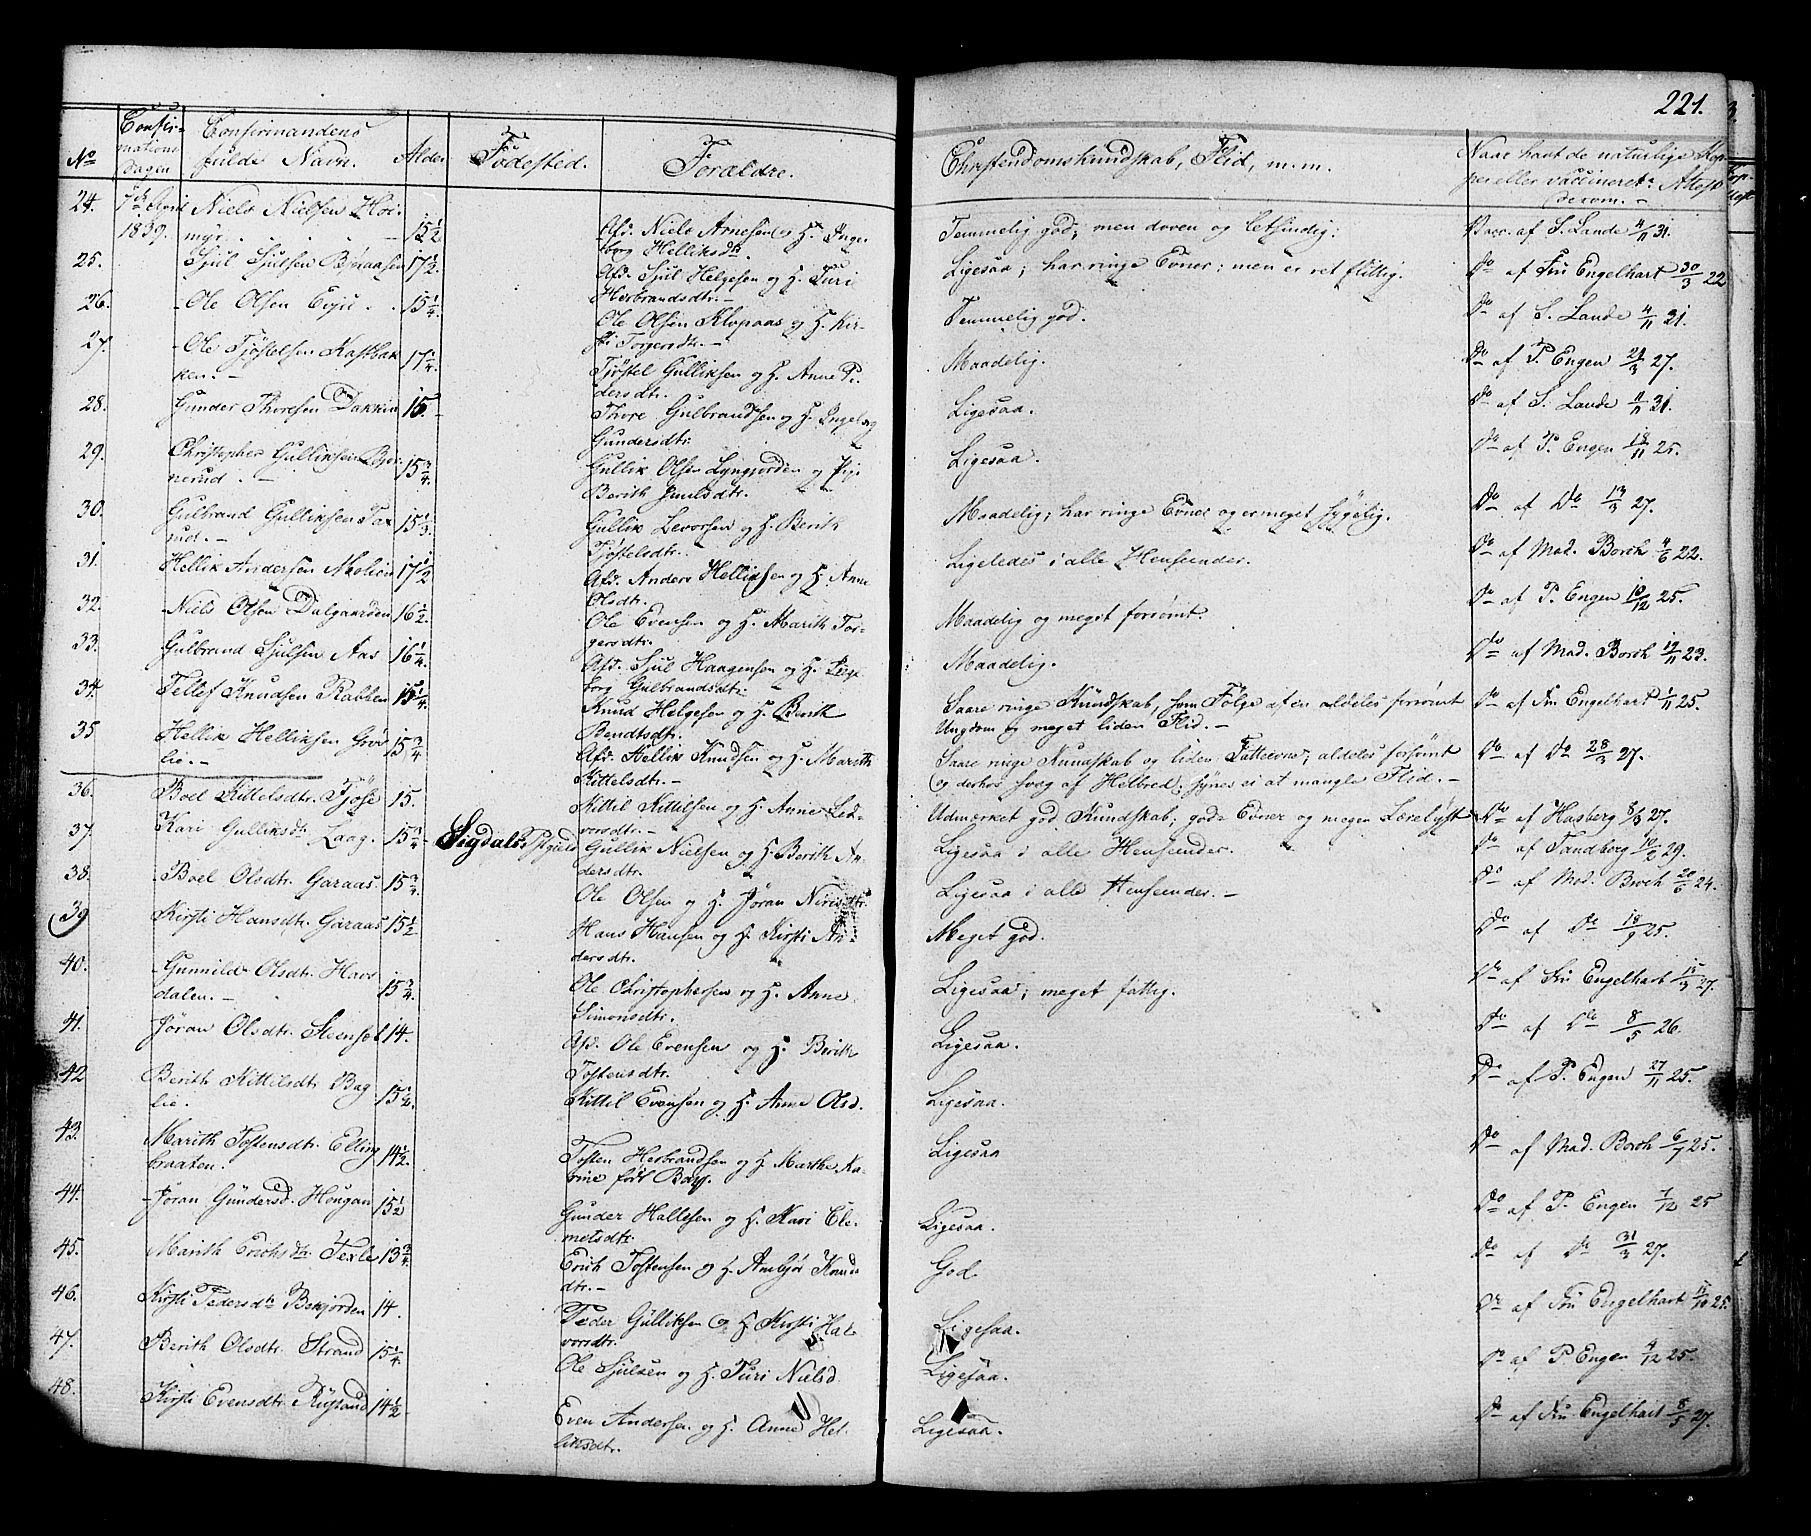 221.
No Confirmations Dagen Confirmandens fulde Navn. Alder Födested. Forældre. Christendomskundskab, Flid, m.m. Naar havt de naturlige Kopper eller vaccineret. Attest derom. —
24. 7de April 1839. Niels Nielsen Höimÿr. 15 1/2 Afd. Niels Arnesen og H. Ingeborg Helliksdtr. Temmelig god; men doven og letsindig. Vacc. af S. Lande 4/11 31.
25. Sjul Sjulsen Björaasen 17 1/2 Afd. Sjul Helgesen og H. Turi Herbrandsdtr. — Ligesaa; har ringe Evner; men er ret flittig. Do af Fru Engelhart 30/3 22
26. Ole Olsen Evju. 15 1/4 Ole Olsen Klopaas og H. Kirsti Torgersdtr. — Temmelig god. Do af S. Lande 4/11 31.
27. Ole Tjöstelsen Kastbakken. — 17 1/4 Tjöstel Gulliksen og H. Anne Pedersdtr. Maadelig. Do af P. Engen 21/3 27.
28. Gunder Thoresen Bakkin 15 Thore Gulbrandsen og H. Ingeborg Gundersdtr. Ligesaa. Do af S. Lande 4/11 31.
29. Christopher Gulliksen Bjornerud. — 15 3/4 Gullik Olsen Lyngjorden og Pige Berith Ligesaa. Do af P. Engen 18/11 25.
30. Gulbrand Gulliksen 15 1/3 Gullik Levorsen og H. Berith Tjöstelsdtr. Maadelig; har ringe Evner og er meget sygelig. Do af Do 13/3 27.
31. Hellik Andersen Moelien 17 1/2 Afd. Anders Helliksen og H. Anne Olsdtr. Ligeledes i alle Henseender. Do af Mad. Borch 4/6 22.
32. Niels Olsen Dalgaarden 16 1/2 Ole Evensen og H. Marith Torgersdtr. Maadelig og meget forsömt. Do af P. Engen 10/12 25.
33. Gulbrand Sjulsen Aas 16 1/4 Afd. Sjul Haagensen og H. Ingeborg Gulbrandsdtr. Maadelig. Do af Mad. Borch 19/11 23.
34. Tellef Knudsen Rabben 15 1/4 Knud Helgesen og H. Berith Bendtsdtr. Saare ringe Kundskab, som Fölge af en aldeles forsömt Ungdom og meget liden Flid. — Do af Fru Engelhart 1/11 25.
35 Hellik Helliksen Gröslie. — 15 3/4 Afd. Hellik Knudsen og H. Marith Kittelsdtr. — Saare ringe Kundskab og liden Fatteevne; aldeles forsömt og derhos svag af Helbred; synes ei at mangle Flid. — Do af Do 28/3 27.
36. Boel Kittelsdtr. Fjöse 15. Kittil Kittilsen og H. Anne Ledvorsdtr. — Udmærket god Kundskab, gode Evner og megen Lærelyst Do af Hasberg 8/8 27.
37. Kari Gulliksdtr. Laag. 15 3/4 Sigdals Pgield Gullik Nielsen og H. Berith Andersdtr. Ligesaa i alle Henseender. Do af Tandberg 10/2 29.
38. Boel Olsdtr. Garaas. 15 3/4 Ole Olsen og H. Jöran Nirisdtr. Ligesaa i alle Henseender. — Do af Mad. Borch 20/5 24.
39 Kirsti Hansdtr. Garaas 15 1/2 Hans Hansen og H. Kirsti Andersdtr. Meget god. Do af Do 18/9 25.
40. Gunnild Olsdtr. Hovdalen. — 15 3/4 Ole Christophersen og H. Anne Simonsdtr. Ligesaa; meget fattig. Do af Fru Engelhart 15/3 27.
41. Jöran Olsdtr. Steenset 14. Afd. Ole Evensen og H. Berith Tostensdtr. Ligesaa. Do af Do 8/5 26.
42 Berith Kittilsdtr Baglie. 15 1/2 Kittil Evensen og H. Anne Olsd. Ligesaa. Do af P. Engen 27/11 25.
43. Marith Tostensdtr. Ellingbraaten. 14 1/2 Tosten Herbrandsen og H. Marthe Karine födt Ligesaa Do af Mad. Borch 6/7 25.
44. Jöran Gundersd. Hougan 15 1/2 Gunder Hallesen og H. Kari Clemetsdtr. Ligesaa. Do af P. Engen 7/12 25
45. Marith Erichsdtr. Texle 13 3/4 Erich Tostensen og H. Ambjör Knudsdtr. — God. Do af Do 31/3 27.
46. Kirsti Pedersdtr Bekjorden 14. Peder Gulliksen og H. Kirsti Halvorsdtr. Ligesaa. Do af Fru Engelhart 11/10 25.
47. Berith Olsdtr. Strand 15 1/4 Ole Sjulsen og H. Turi Nielsd. Ligesaa. Do af P. Engen 4/12 25.
48. Kirsti Evensdtr. Rustand 14 1/2 Even Andersen og H. Anne Helliksdtr. Ligesaa. Do af Fru Engelhart 8/5 27.